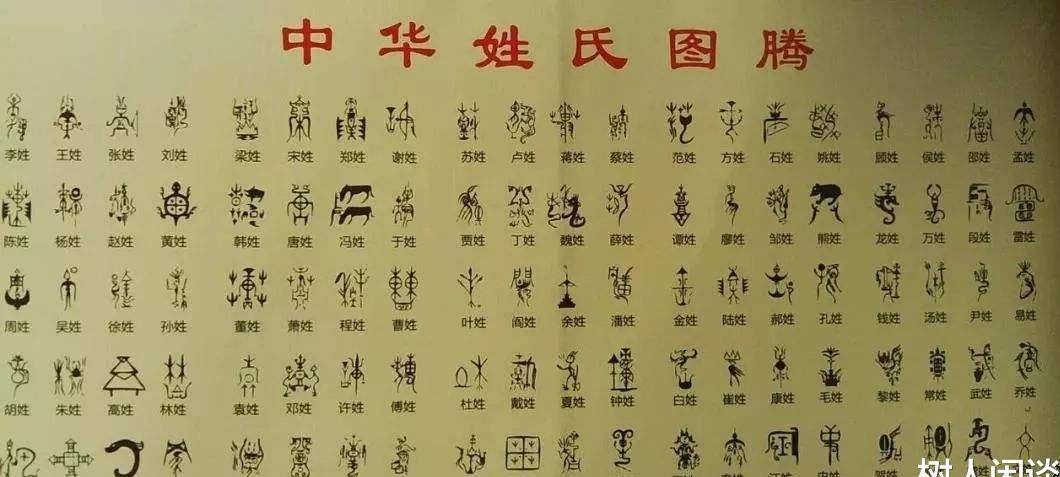 中华姓氏图腾
李姓 王姓 张姓 刘姓 梁姓 宋姓 郑姓 谢姓 苏姓 卢姓 蒋姓 蔡姓 范姓 方姓 石姓 姚姓 顾姓 侯姓 邵姓 孟姓
陈姓 杨姓 赵姓 黄姓 韩姓 唐姓 冯姓 于姓 贾姓 丁姓 魏姓 薛姓 谭姓 廖姓 邹姓 熊姓 龙姓 万姓 段姓 雷姓
周姓 吴姓 徐姓 孙姓 董姓 萧姓 程姓 曹姓 叶姓 阎姓 余姓 潘姓 金姓 陆姓 郝姓 孔姓 钱姓 汤姓 尹姓 易姓
胡姓 朱姓 高姓 林姓 袁姓 邓姓 许姓 傅姓 杜姓 戴姓 夏姓 钟姓 白姓 崔姓 康姓 毛姓 黎姓 常姓 武姓 乔姓
树人闲谈